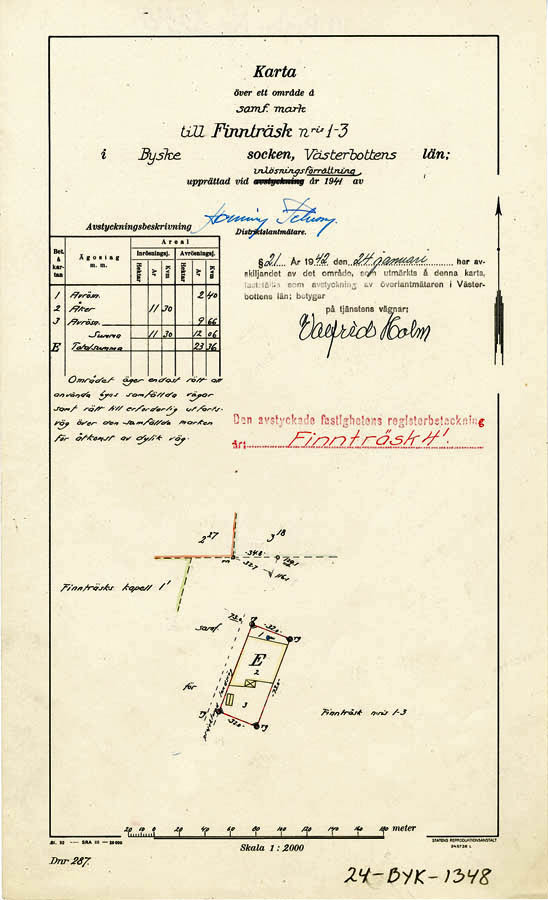 Karta
över ett område å
samf. mark
till Finnträsk nris 1-3
i Byske socken, Västerbottens län;
inlösningsförrättning
upprättad vid avstyckning år 1941 av
Avstyckningsbeskrivning
Distriktslantmätare.
Bet. å kartan
Ägoslag m. m.
Areal
Inrösningsj.
Avrösningsj.
Hektar Ar Kvm Hektar Ar Kvm
1 Avrösn. 2 40
2 Åker 11 30
3 Avrösn. 9 66
Summa 11 30 12 06
E Totalsumma 23 36
Området äger endast rätt att
använda byns samfällda vägar
samt rätt till erforderlig utfarts-
väg över den samfällda marken
för åtkomst av dylik väg.
§ 21 År 1942 den 24 januari har av-
skiljandet av det område, som utmärkts å denna karta,
fastställts som avstyckning av överlantmätaren i Väster-
bottens län; betygar
på tjänstens vägnar:
Valfrid Holm
Den avstyckade fastighetens registerbeteckning
är: Finnträsk 4¹.
2²⁷
3¹⁸
-34.8
-32.7
116.1
Finnträsks kapell 1¹
samf.
-32.0-
1
E
2
3
för
rg
rg
rg
-32.0-
Finnträsk nris 1-3
20 10 0 20 40 60 80 100 120 140 160 180 meter
Skala 1 : 2000
STATENS REPRODUKTIONSANSTALT
Dnr 287.
24-BYK-1348